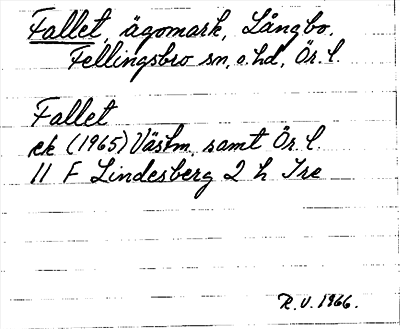 Fallet, ägomark, Långbo,
Fellingsbro sn, o. hd, Ör. l.
Fallet
ek (1965) Västm. samt Ör. l.
11 F Lindesberg 2 h Tre
R. V. 1966.